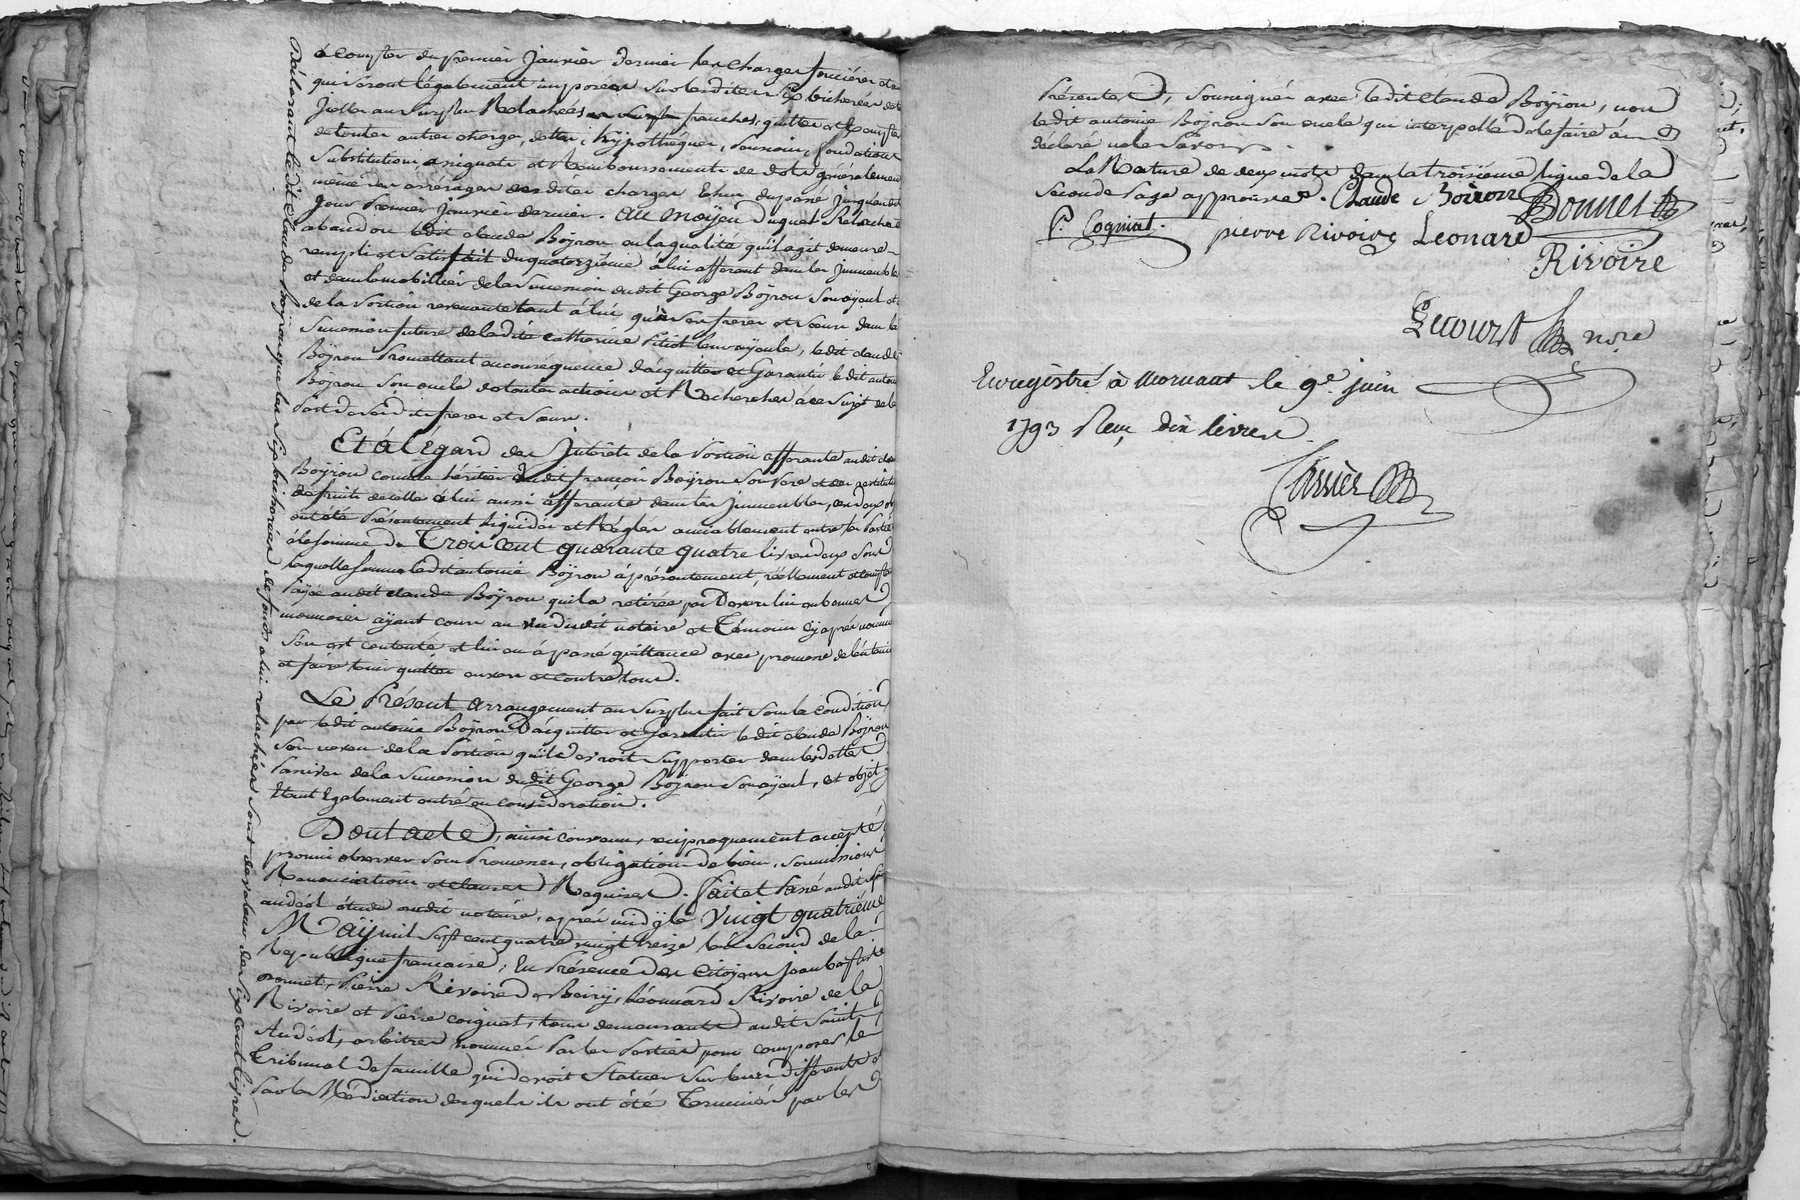 à compter du premier Janvier dernier les charges foncières et
qui seront légalement imposées sur lesdites six bicherées de
au surplus Relachées franches, quittes et Exemptes
de toutes autres charges, dettes, hypothéques, pensions, fondations
Substitutions et Remboursements de dots généralement
même des arrérages desdites charges Echus du passé jusques au
jour Premier janvier dernier. Au Moyen duquel Relaché
abandon ledit claude Boÿron en la qualité qu'il agit demeure
rempli et satisfait du quatorzième à lui afferant dans les Immeubles
et dans le mobillier de la Succession dudit George Boÿron Son ayeul et
de la Portion revenante tant à lui qu'à ses freres et sœurs dans la
Succession future de ladite Catherine Pitiot leur ayeule, ledit claude
Boÿron Promettant en conséquence d'acquitter et Garantir ledit antoine
Boÿron Son oncle de toutes actions et Recherches à ce Sujet de la
Part de sesdits freres et sœurs.
Et à l'égard des Intérêts de la Portion afferante audit claude
Boÿron comme héritier dudit françois Boÿron Son Pere et des restitutions
de fruits de celle à lui aussi afferante dans les immeubles,
ont été Présentement liquidés et Réglés amiablement entre les Parties
à la somme de Trois cent quarante quatre livres deux Sous
laquelle somme ledit antoine Boÿron a présentement, réellement et comptant
Payée audit claude Boÿron qui l'a retirée par Devers lui en bonnes
monnoies ayant cours au vu dudit notaire et Témoins cy après nommés
s'en est contenté et lui en a passé quittance avec promesse de l'en tenir
et faire tenir quitte envers et contre tous.
Le Présent arrangement au Surplus fait Sous la condition
par ledit antoine Boÿron D'acquitter et Garantir ledit claude Boÿron
Son neveu de la Portion qu'il devroit Supporter dans les dettes
Passives de la Succession dudit George Boÿron Son ayeul, cet objet y
étant Egalement entré en considération.
Dont acte, ainsi convenu, reciproquement accepté
promis observer sous Promesses, obligations de biens, soumissions
Renonciations et clauses Requises. fait et Passé audit saint
andéol étude dudit notaire, après midy le Vingt quatrième
May mil Sept cent quatre vingt treize l'an Second de la
République francaise, En Présence des Citoyens jean baptiste
Bonnet, Pierre Rivoire de Boiry, Léonnard Rivoire de la
Rivoire et Pierre coignet, tous demeurants audit Saint
Andéol, arbitres nommés Par les Parties pour composer le
Tribunal de famille qui devoit Statuer Sur leurs differents et
Par la Médiation desquels ils ont été Terminés par les
Déclarant ledit Claude Boÿron que les Six bicherées de fonds à lui relachées sont de valeur de Six Cent livres.
Présentes, Soussignés avec ledit Claude Boÿron, non
ledit antoine Boÿron Son oncle qui interpellé de le faire a
déclaré ne le Savoir.
La Rature de deux mots dans la troisième ligne de la
seconde Page approuvée. Claude Boiron Bonnet
P. Cogniet. pierre Rivoire Leonard
Rivoire
Lecourt nore
Enregistré à Mornant le 9e juin
1793 Reçu dix livres.